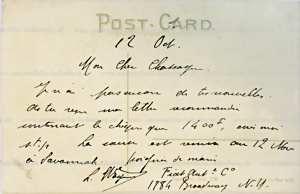 POST-CARD.
12 Oct.
Mon Cher Chassagne
Je n'ai pas aucun de tes nouvelles.
as tu reçu ma lettre recommandée
contenant le chèque que 1400f, avis moi
s.t.p. La course est remise au 12 Nov
à Savannah poignée de main
L. Wagner Fiat Aut. Co
1784 Broadway N.Y